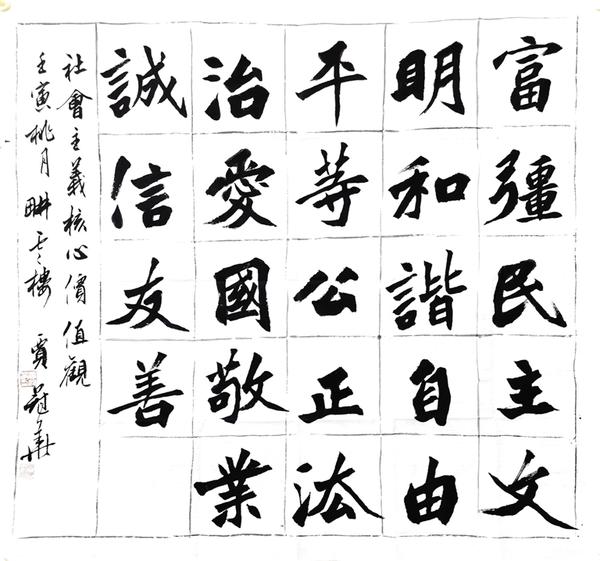 富彊民主文
明和諧自由
平等公正法
治愛國敬業
誠信友善
社會主義核心價值觀
壬寅桃月畊云樓賈冠華